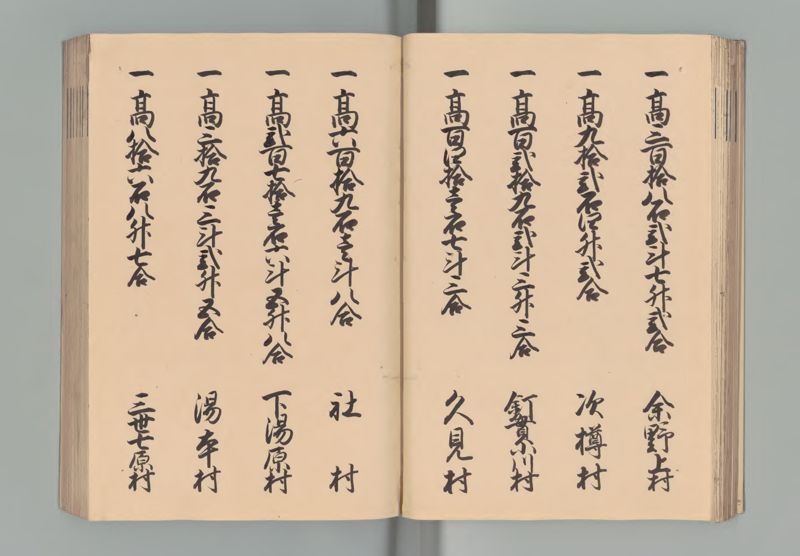 一高三百拾八石弐斗七升弐合 余野上村
一高九拾弐石四升弐合 次樽村
一高百弐拾九石弐斗三升三合 釘貫小川村
一高百四拾壱石七斗三合 久見村
一高六百拾九石壱斗八合 社村
一高弐百七拾壱石六斗五升八合 下湯原村
一高三拾九石三斗弐升五合 湯本村
一高八拾六石八升七合 三世七原村